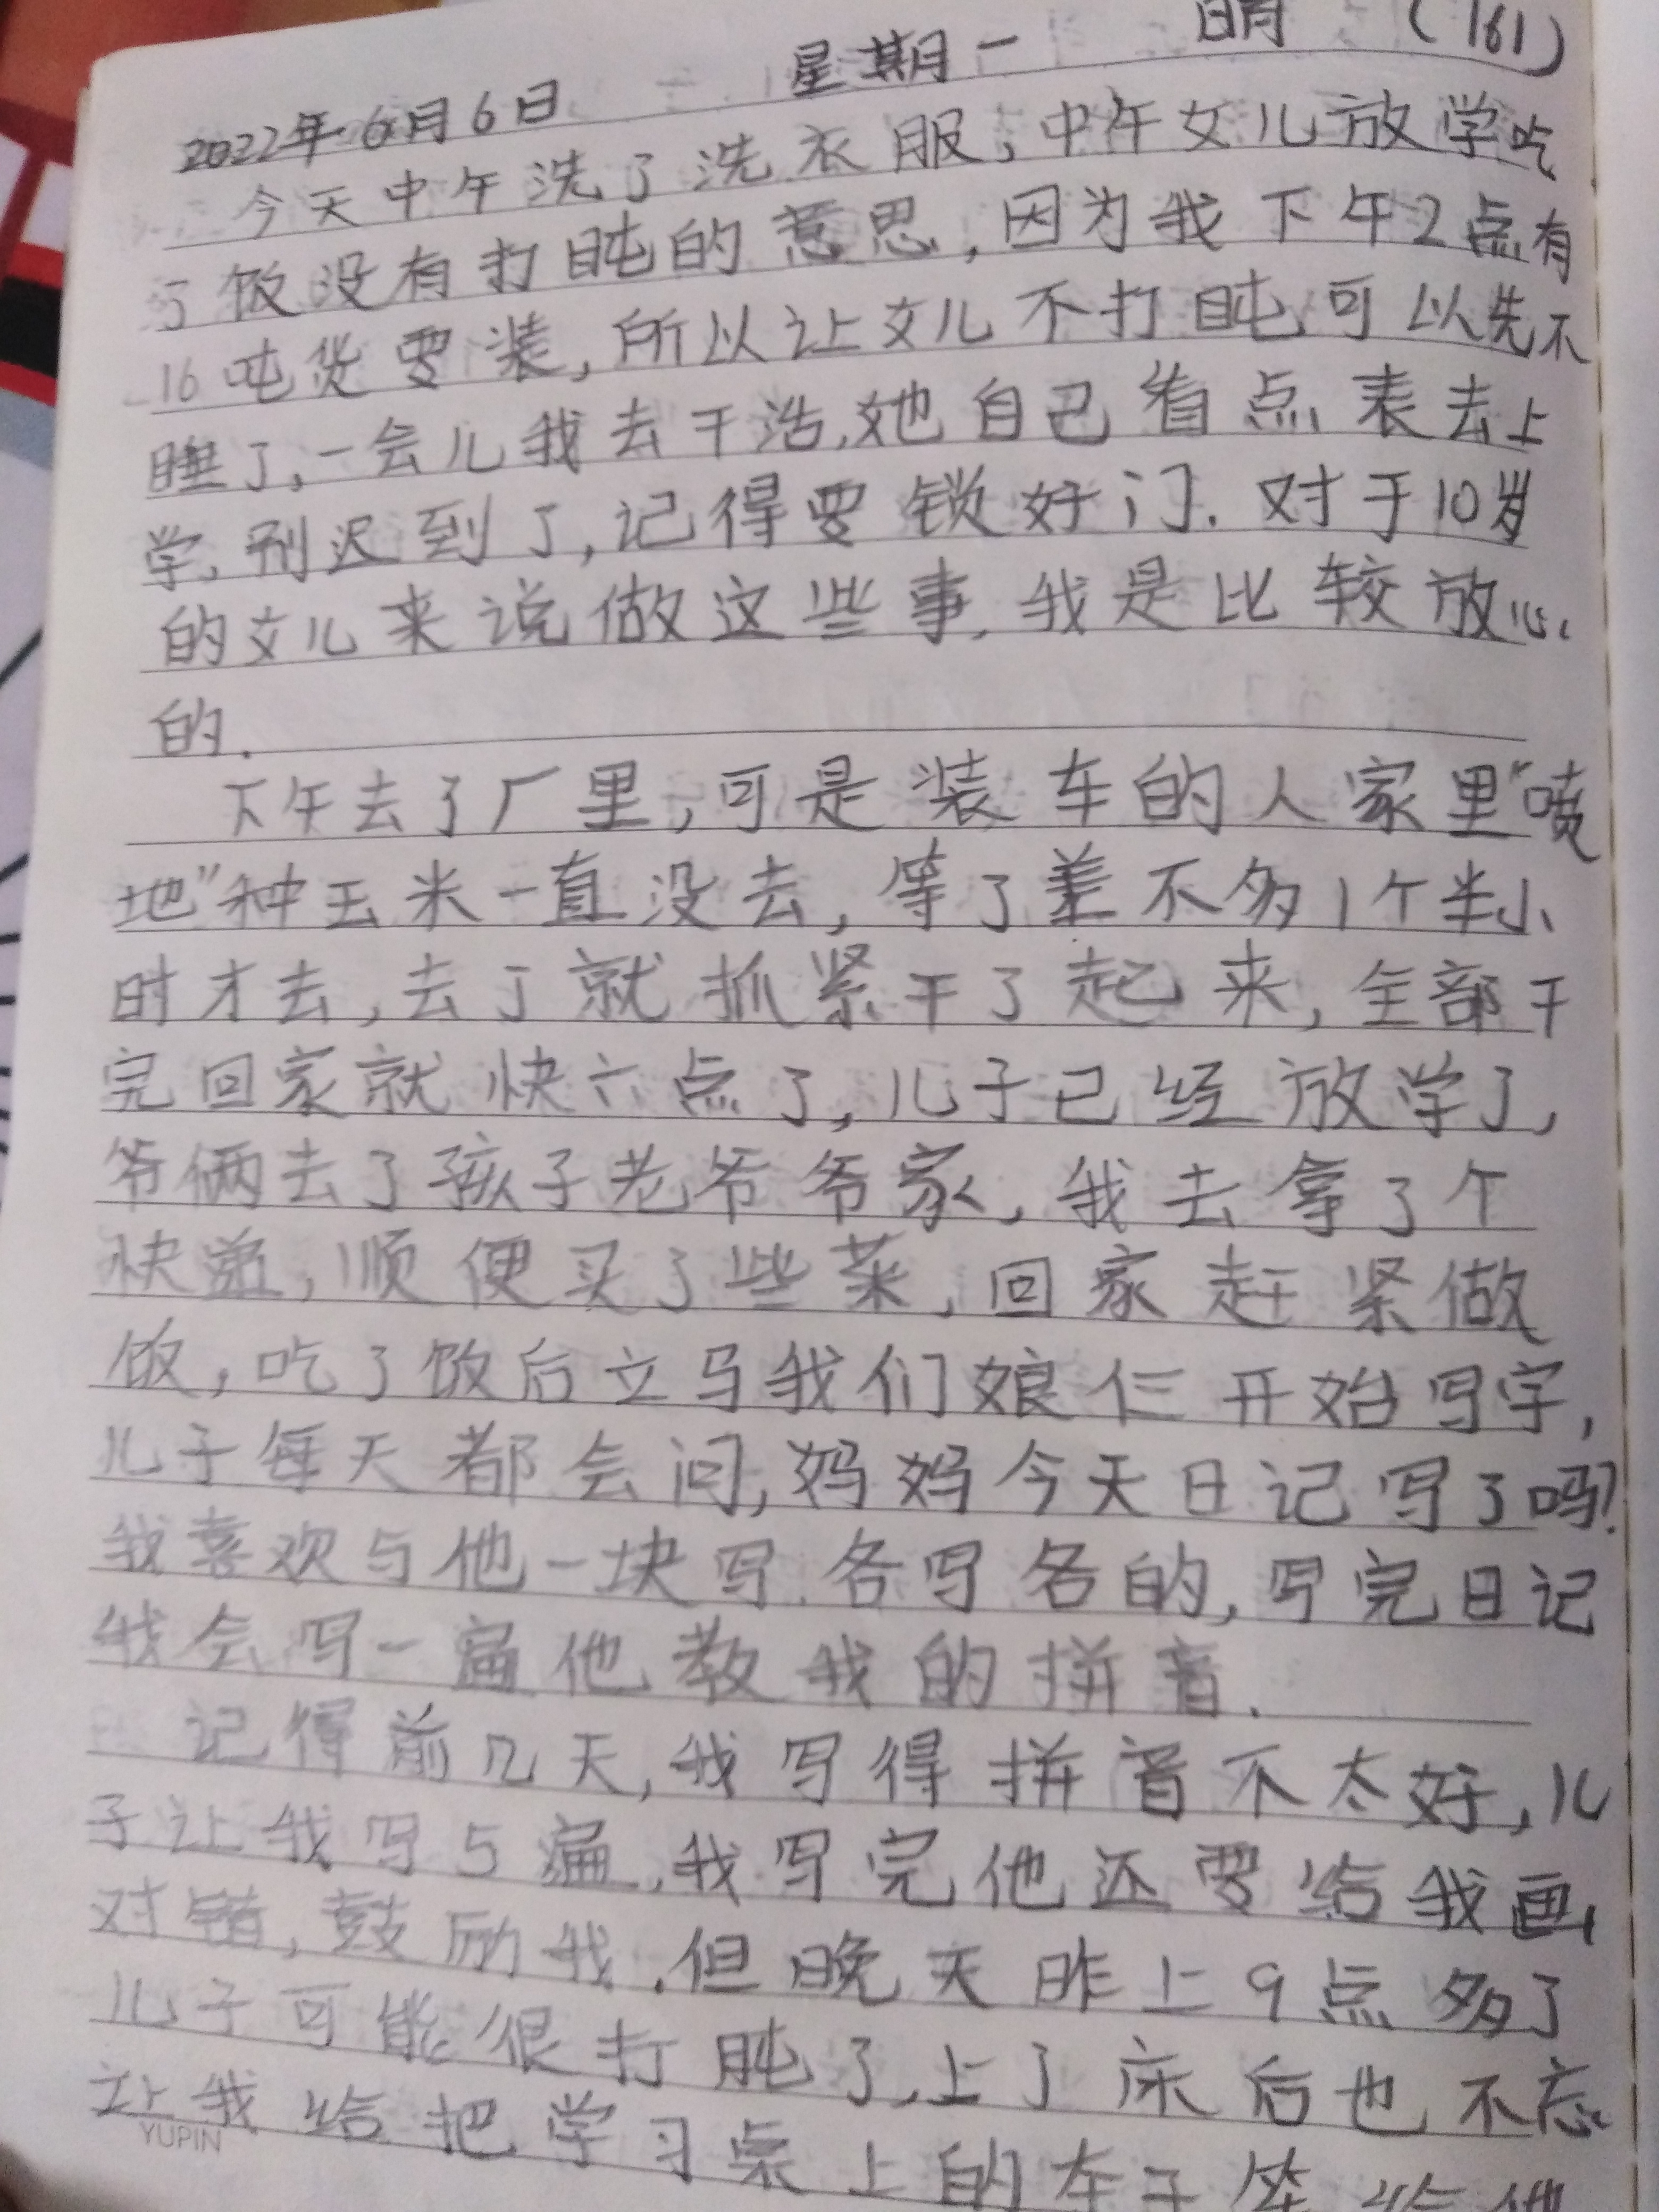 2022年6月6日 星期一 晴 (161)
今天中午洗了洗衣服,中午女儿放学吃
了饭没有打盹的意思,因为我下午2点有
16吨货要装,所以让女儿不打盹可以先不
睡了,一会儿我去干活,她自己看点表去上
学,别迟到了,记得要锁好门.对于10岁
的女儿来说做这些事,我是比较放心
的.
下午去了厂里,可是装车的人家里“喷
地”种玉米一直没去,等了差不多1个半小
时才去,去了就抓紧干了起来,全部干
完回家就快六点了,儿子已经放学了,
爷俩去了孩子老爷爷家,我去拿了个
快递,顺便买了些菜,回家赶紧做
饭,吃了饭后立马我们娘仨开始写字,
儿子每天都会问,妈妈今天日记写了吗?
我喜欢与他一块写.各写各的,写完日记
我会写一遍他教我的拼音.
记得前几天,我写得拼音不太好,儿
子让我写5遍,我写完他还要给我画
对错,鼓励我.但晚天昨上9点多了
儿子可能很打盹了,上了床后也不忘
让我给把学习桌上的车子
YUPIN